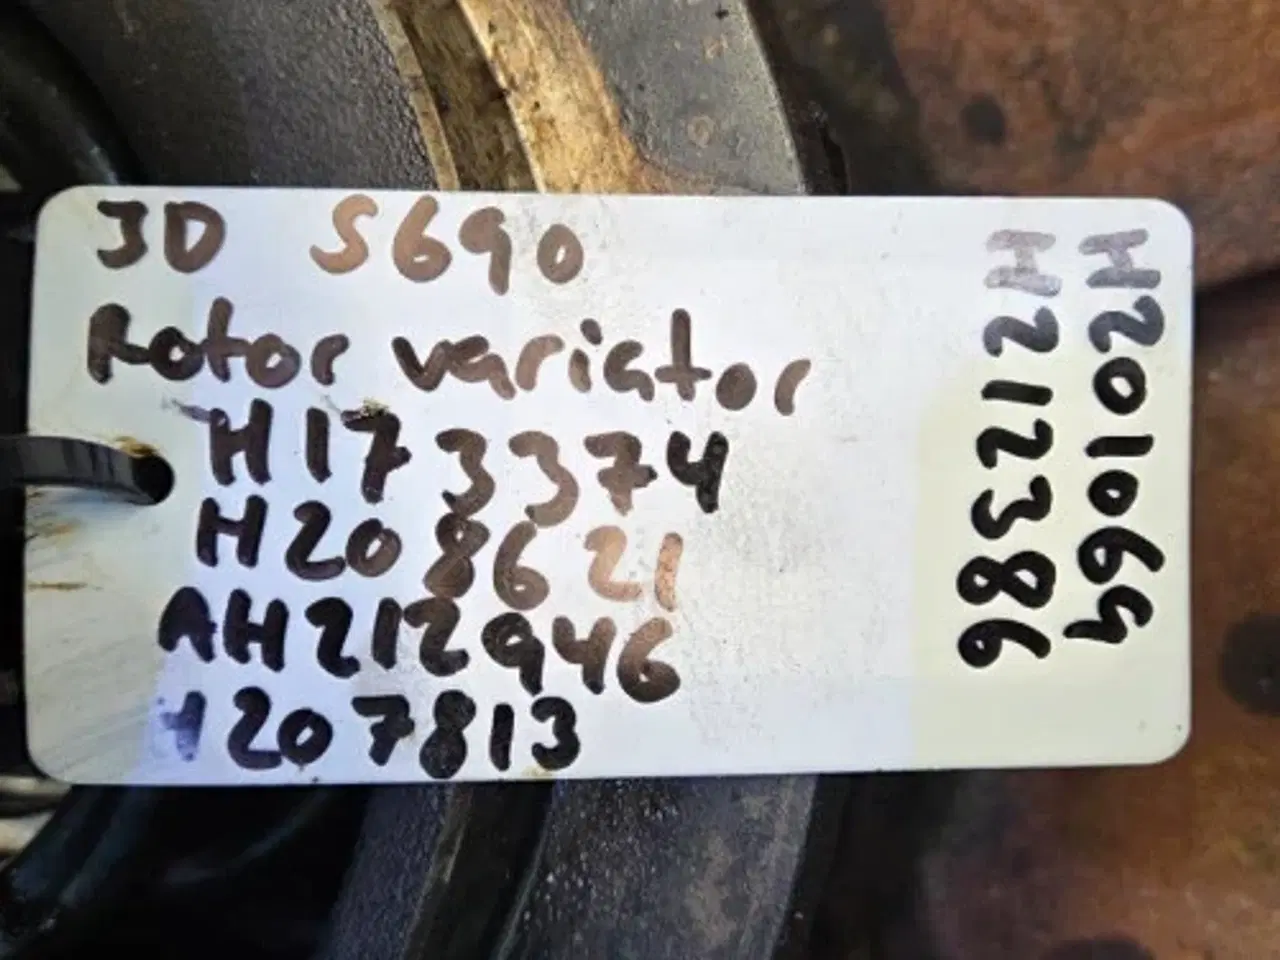 JD S690
Rotor variator
H173374
H208621
AH212946
H207813
H201069
H212386